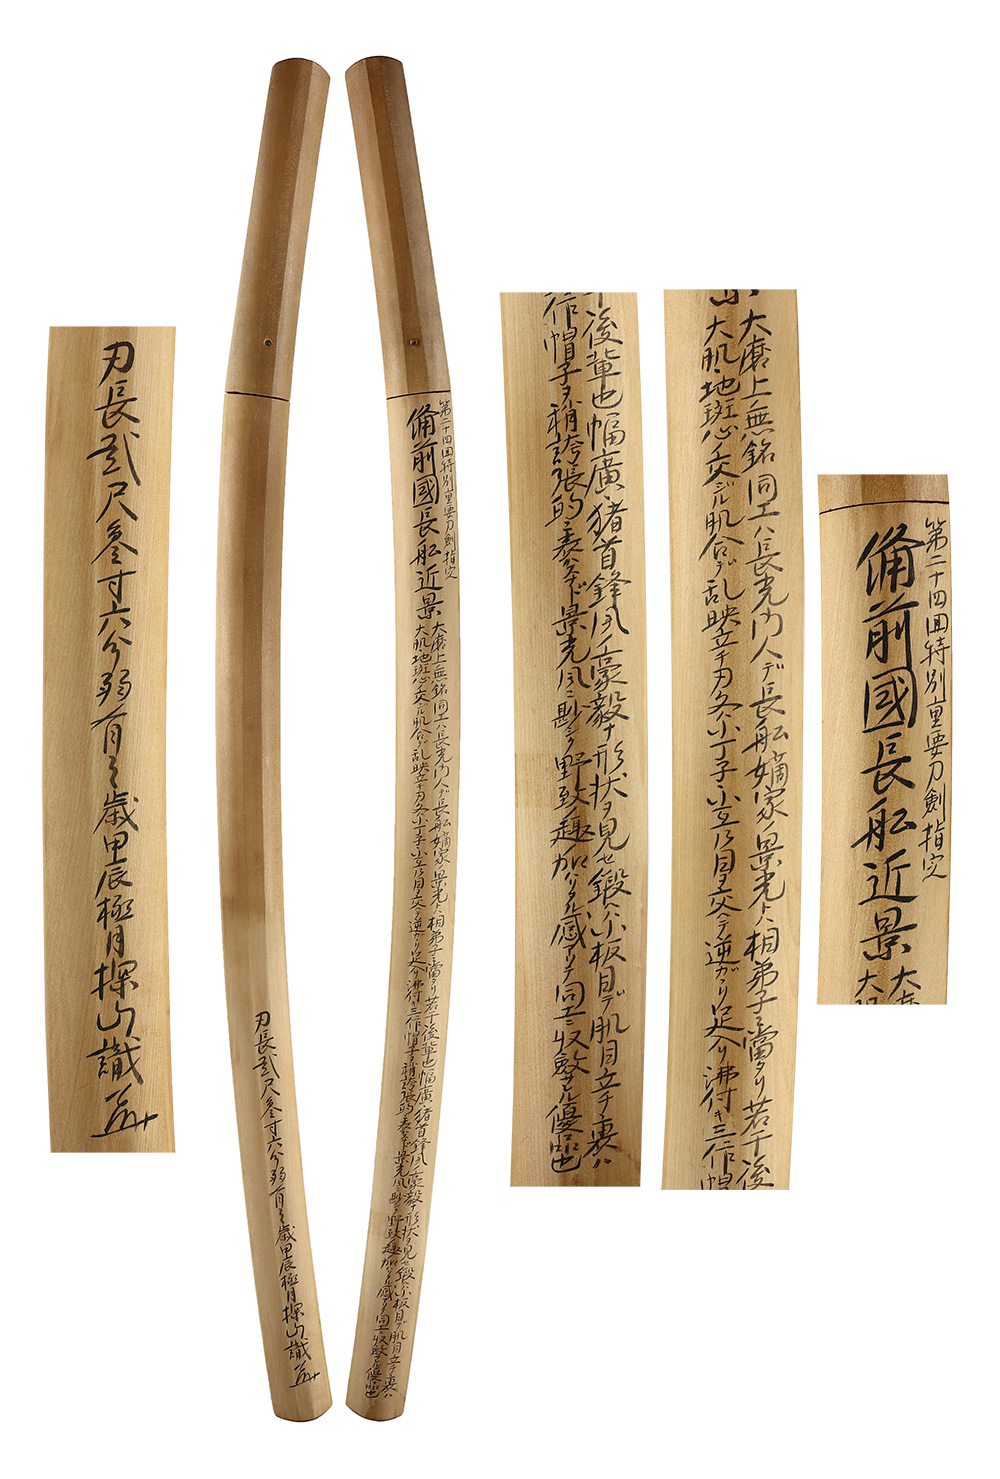 第二十四回特別重要刀劍指定
備前國長船近景
大磨上無銘同工ハ長光門人デ長船嫡家ノ景光トハ相弟子ニ當タリ若干後輩也幅廣猪首鋒風ノ豪毅ナ形状ヲ見セ鍛ハ小板目デ肌目立チ裏ハ
大肌・地斑心ノ交ジル肌合デ乱映立チ刃文ハ小丁子・小互乃目ヲ交ヘテ逆ガカリ足入リ沸付キ三作帽子ヲ稍誇張的ニ表ハス景光風ニ尠シク野致ノ趣加ハリタル感アリテ同工ニ収斂サル優品也
刃長貳尺参寸六分弱有之歳甲辰極月探山識